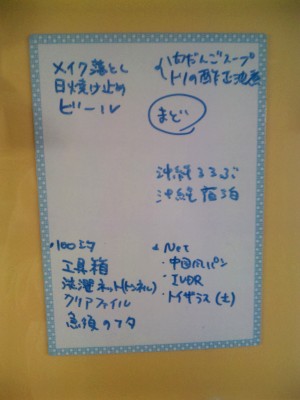 メイク落とし
日焼け止め
ビール
肉だんごスープ
トリの酢
まど
沖縄るるぶ
沖縄宿泊
・100コメ
工具箱
洗濯ネット(トンネル)
クリアファイル
急須のフタ
Net
・中国風パン
・IVDR
・トイザラス(土)